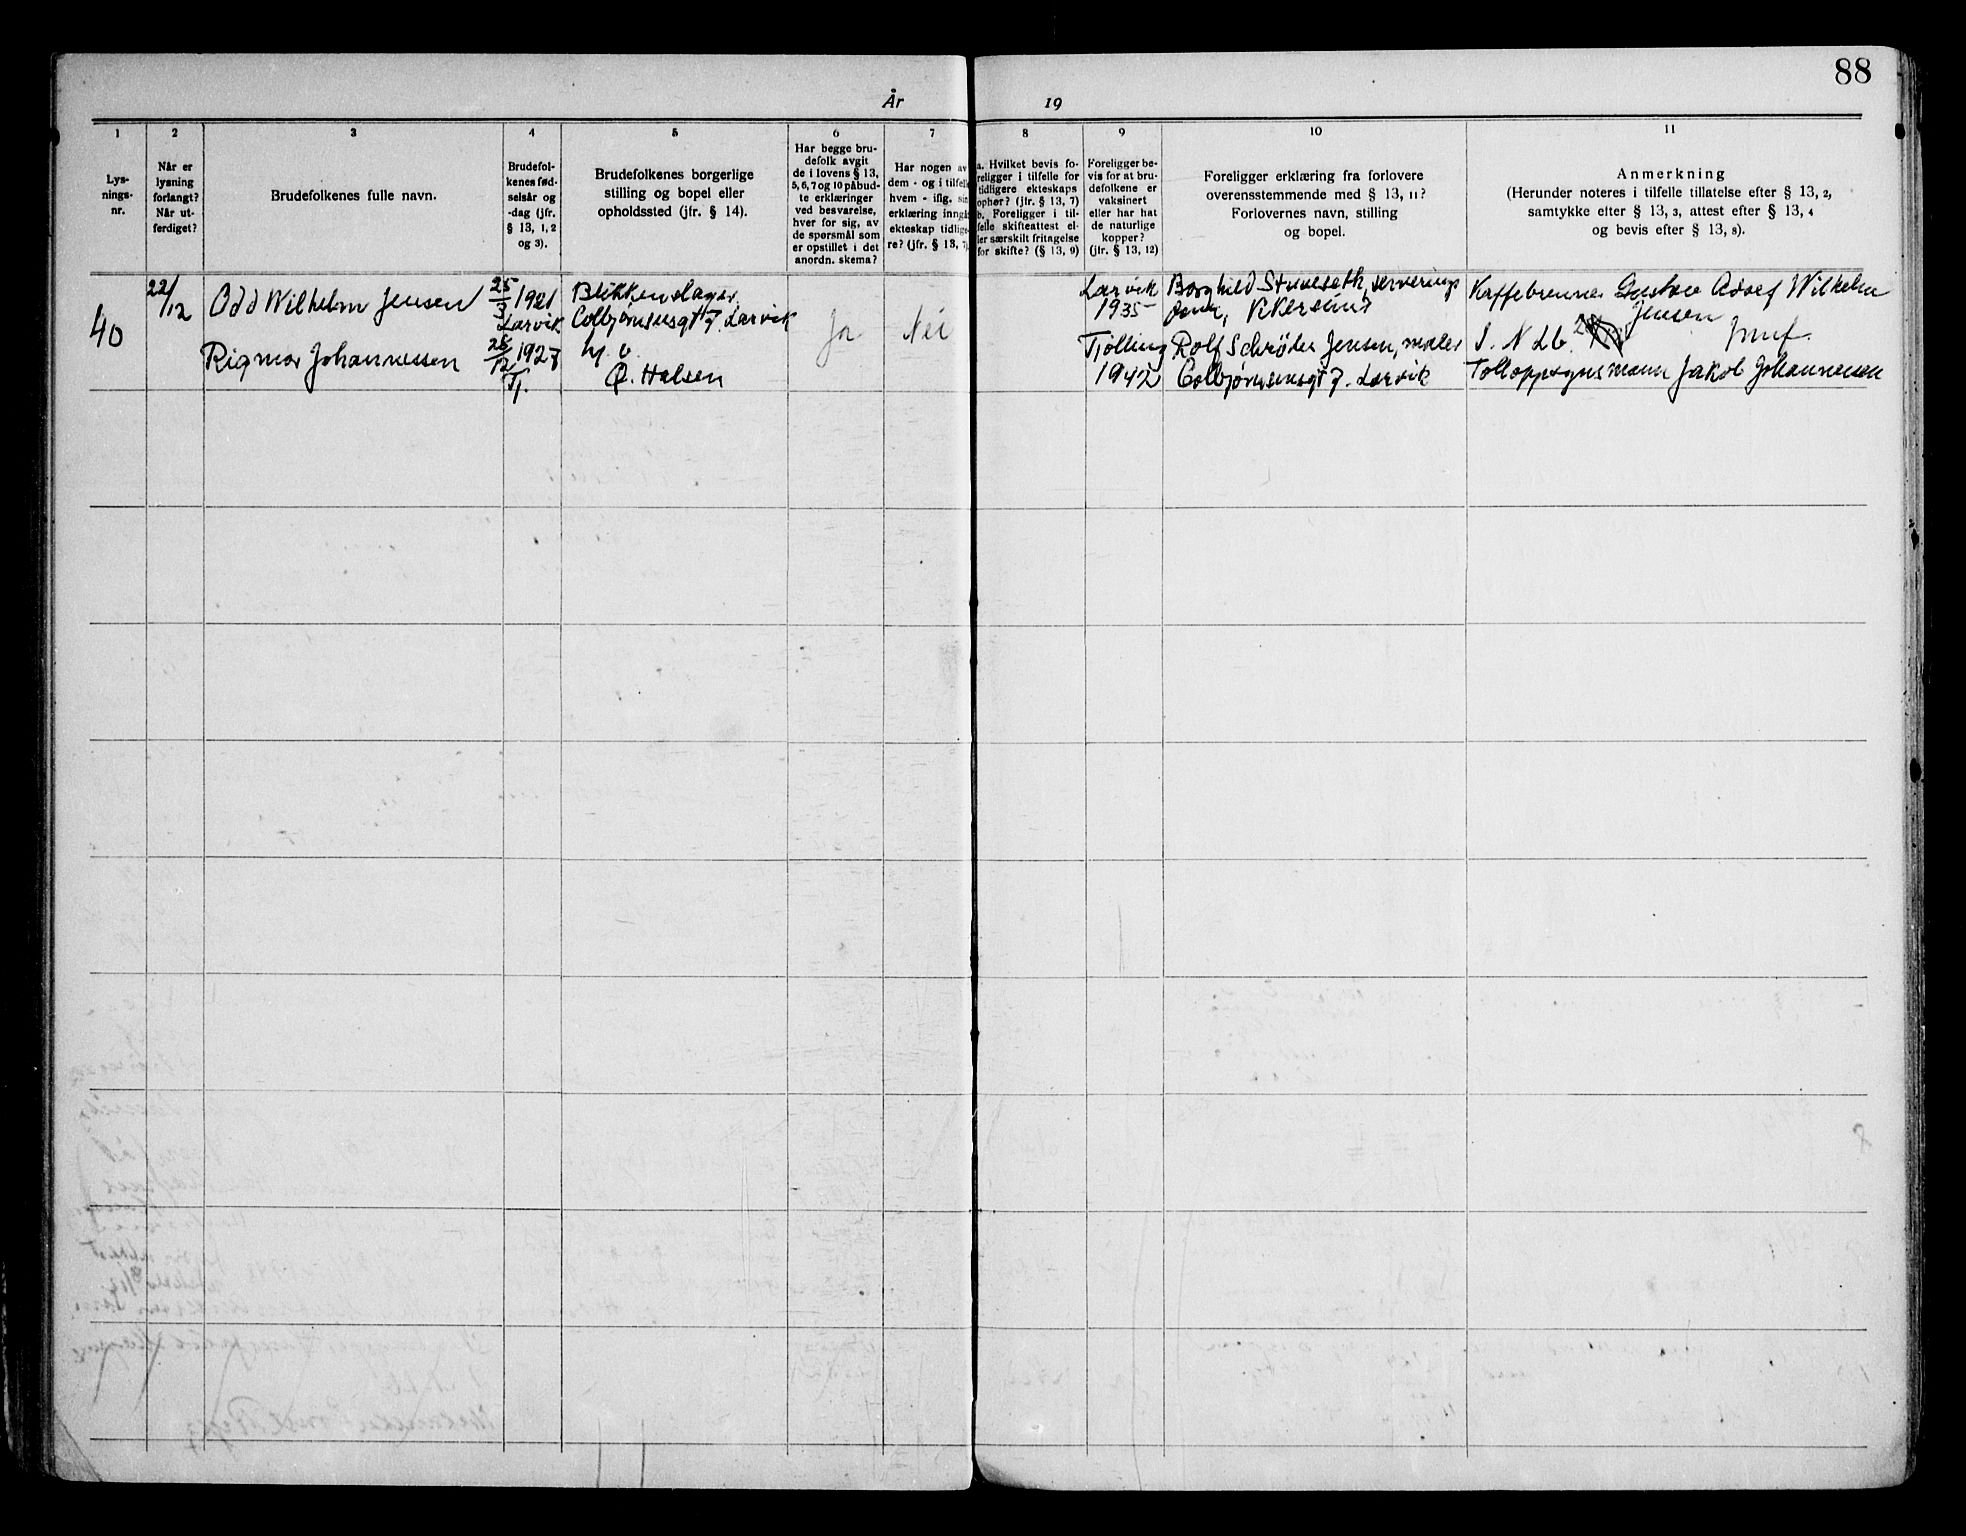 88
År 19
1
Lys-
nings-
nr.
2
Når er
lysning
forlangt?
Når ut-
ferdiget?
3
Brudefolkenes fulle navn.
4
Brudefol-
kenes fød-
selsår og
-dag (jfr.
§ 13, 1, 2
og 3).
5
Brudefolkenes borgerlige
stilling og bopel eller
opholdssted (jfr. § 14).
6
Har begge bru-
defolk avgit
de i lovens § 13,
5, 6, 7 og 10 påbud-
te erklæringer
ved besvarelse,
hver for sig, av
de spørsmål som
er opstillet i det
anordn. skema?
7
Har nogen av
dem - og i tilfelle
hvem - iflg. sin
erklæring inngå
ekteskap tidlige-
re? (jfr. § 13, 7).
8
a. Hvilket bevis fo-
religger i tilfelle for
tidligere ekteskaps
ophør? (jfr. § 13, 7)
b. Foreligger i til-
felle skifteattest el-
ler særskilt fritagelse
for skifte? (§ 13, 9)
9
Foreligger be-
vis for at bru-
defolkene er
vaksinert
eller har hat
de naturlige
kopper?
(jfr. § 13, 12)
10
Foreligger erklæring fra forlovere
overensstemmende med § 13, 11?
Forlovernes navn, stilling
og bopel.
11
Anmerkning
(Herunder noteres i tilfelle tillatelse efter § 13, 2,
samtykke efter § 13, 3, attest efter § 13, 4
og bevis efter § 13, 8).
40
22/12
Odd Wilhelm Jensen
Rigmor Johannessen
25/3 1921
Larvik
25/12 1927
Tj.
Blikkenslager
Colbjørnsensgt 7. Larvik
hj. v.
Ø. Halsen
Ja
Nei
Larvik
1935
Tjølling
1942
Borghild, serverings
dame, Vikersund
Rolf Schrøder Jensen, maler
Colbjørnsensgt 7. Larvik
Kaffebrenner Gustav Adolf Wilhelm
Jensen
S. N Lb.
Tolloppsynsmann Jakob Johannessen